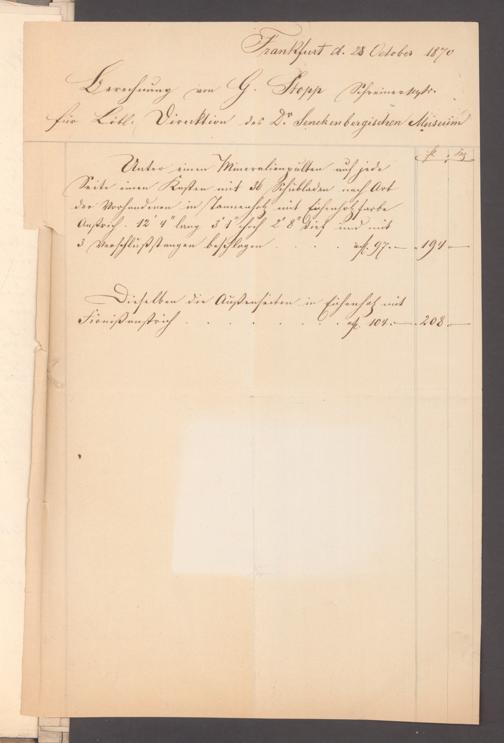 Frankfurt d. 28 October 1870
Berechnung von G. Kopp Schreinermstr.
für Löbl. Direktion des Dr Senckenbergischen Museum
fl. xr
Unter einen Mineralienpulten auf jede
Seite einen Kasten mit 36 Schubladen nach Art
der Vorhandenen in Tannenholz mit Eichenholzfarbe
Anstrich 12' 4" lang 3' 1" hoch 2' 8 tief und mit
3 Verschlußstangen beschlagen . . . . . . à fl. 97.— . 194 —
Dieselben die Außenseiten in Eichenholz mit
Firnißanstrich . . . . . . . . . à fl. 104.— . 208.—